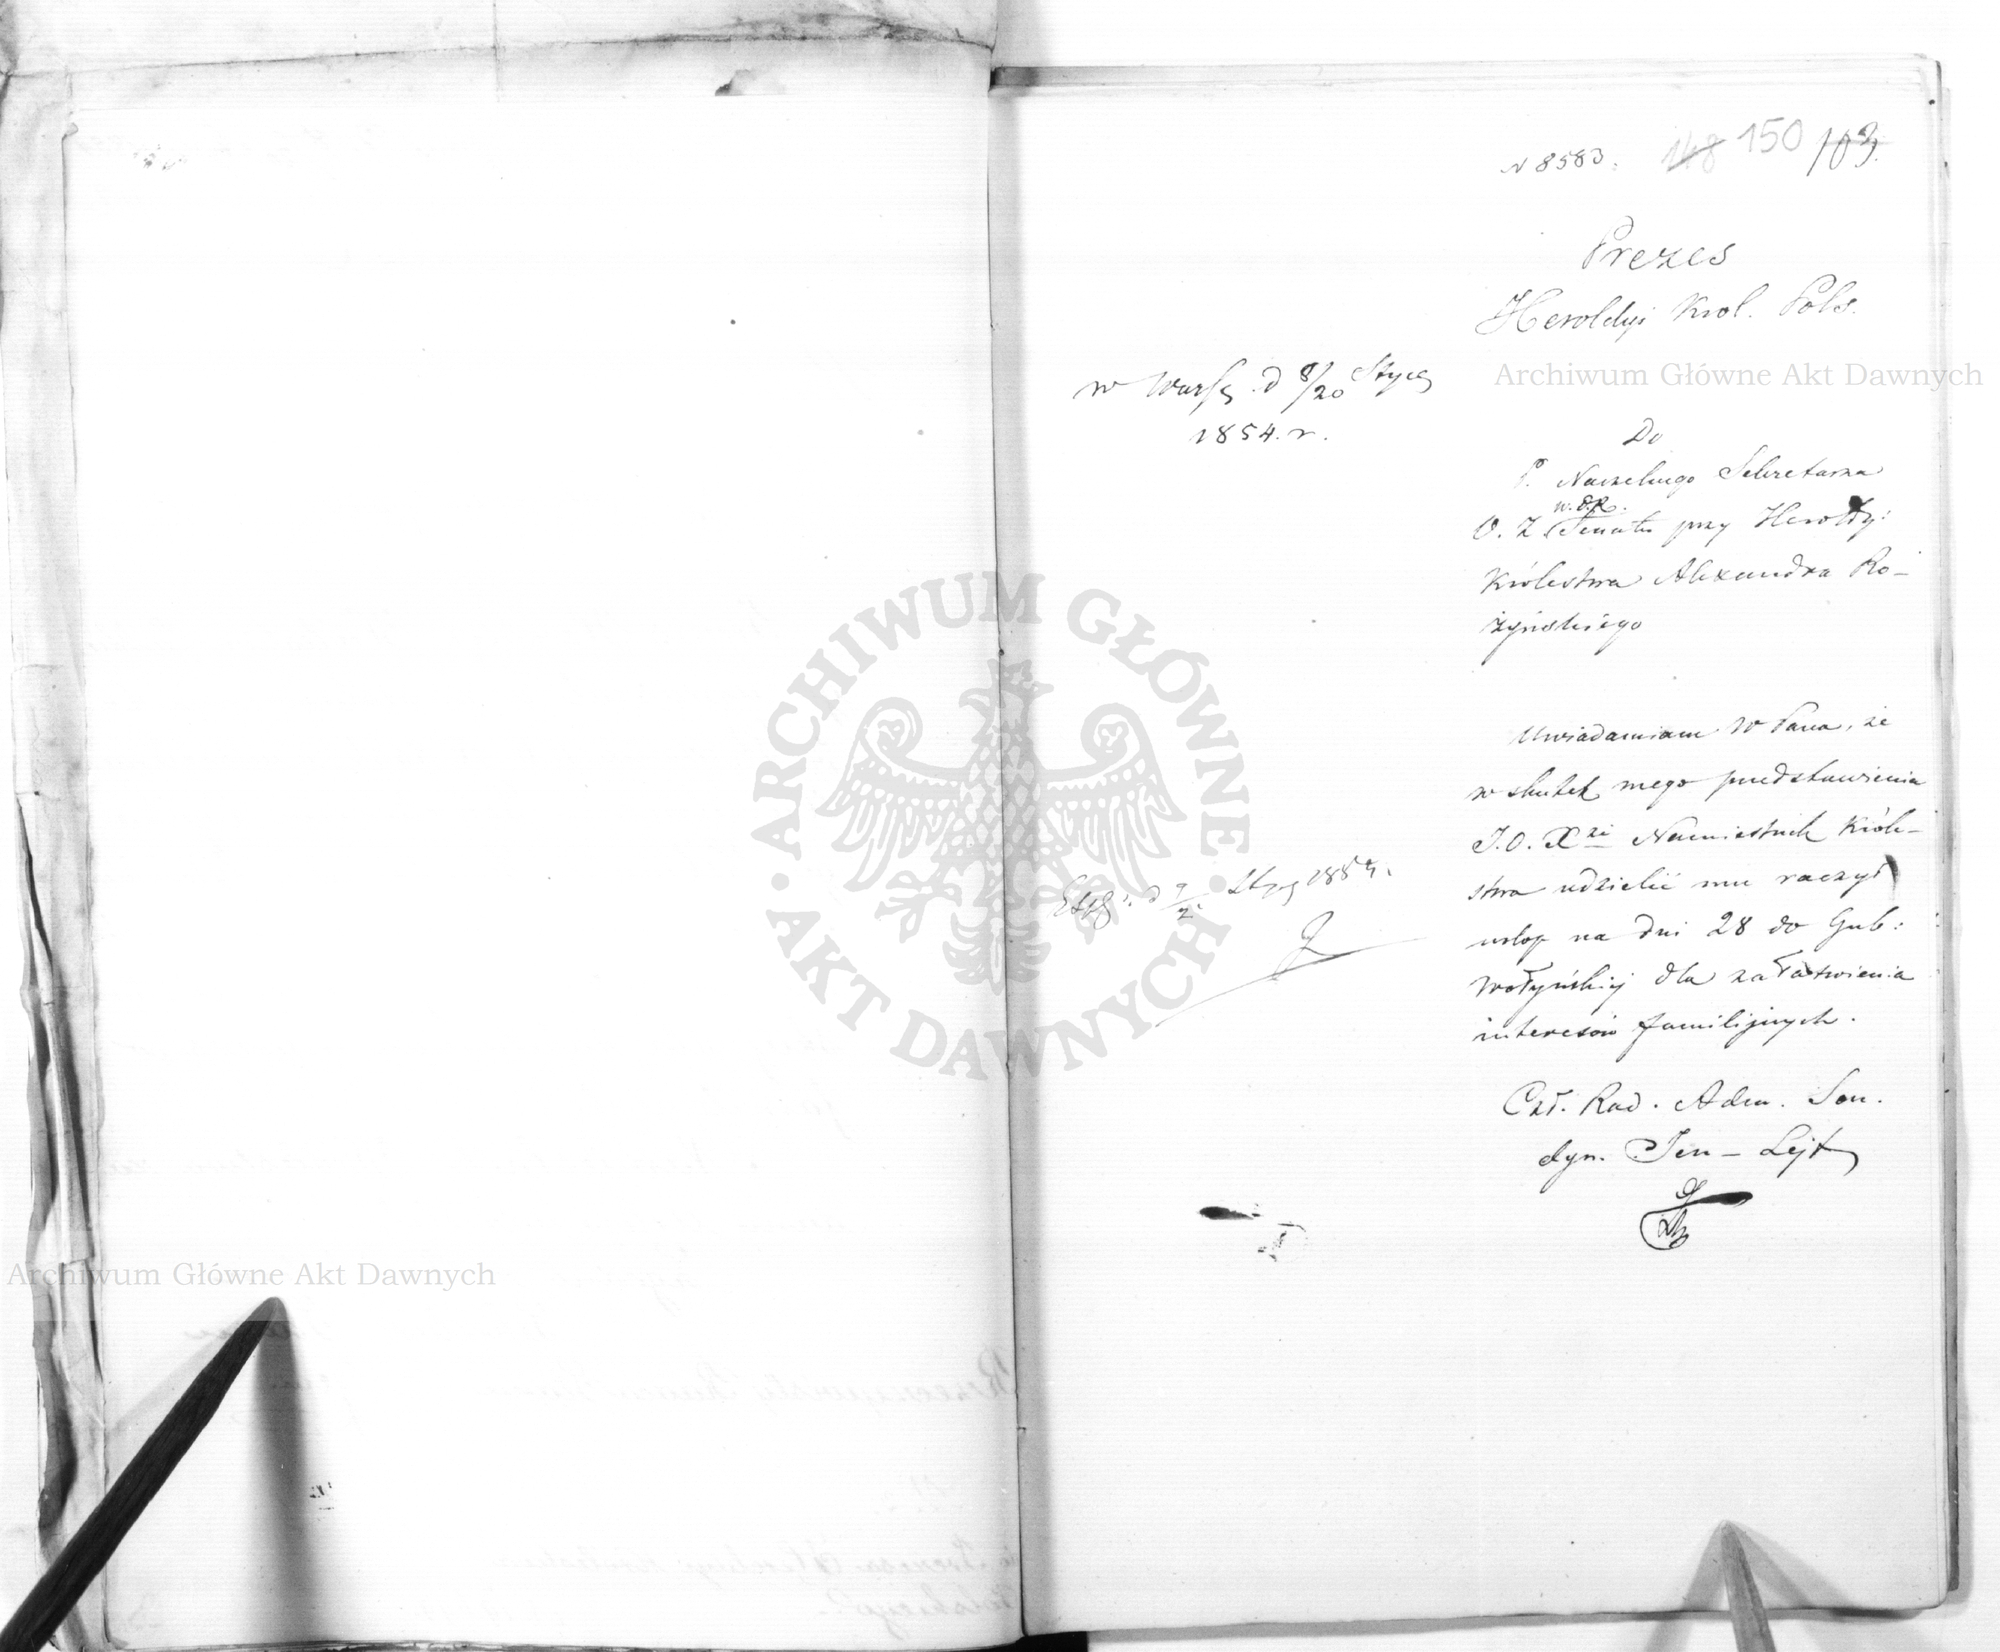 N 8583. 148 150 103.
Prezes
Heroldyi Krol. Pols.
w Warsz. d 8/20 Stycz
1854. r.
Do
P. Naczelnego Sekretarza
O. Z. Senatu przy Heroldy:
Królestwa Alexandra Ro-
żyńskiego
Uwiadamiam W Pana, że
w skutek mego przedstawienia
J. O. Xże Namiestnik Króle-
stwa udzielić mu raczył
urlop na dni 28 do Gub:
Wołyńskiej dla załatwienia
interesów familijnych.
Exp: d 9/21 Stycz 1854.
Czł. Rad. Adm. Sen.
dyr. Jen - Lejt
ARCHIWUM GŁÓWNE AKT DAWNYCH
Archiwum Główne Akt Dawnych
Archiwum Główne Akt Dawnych